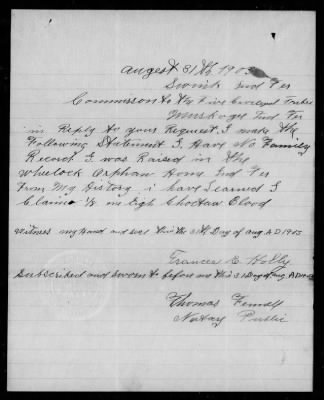 August 31th 1903
Swink Ind Ter
Commisson to the Five Civelized Tribes
Muskogee Ind Ter
in Reply to your Request I make the
Following Statement I Have No Family
Record I was Raised in the
Wheelock Orphan Home Ind Ter
From My History i have Learned I
Claime Choctaw Blood
witness my hand and seal this the 31th Day of aug A D 1903
Frances E Holly
Subscribed and sworn to before me this 31 Day of Aug A D
Thomas
Notary Public